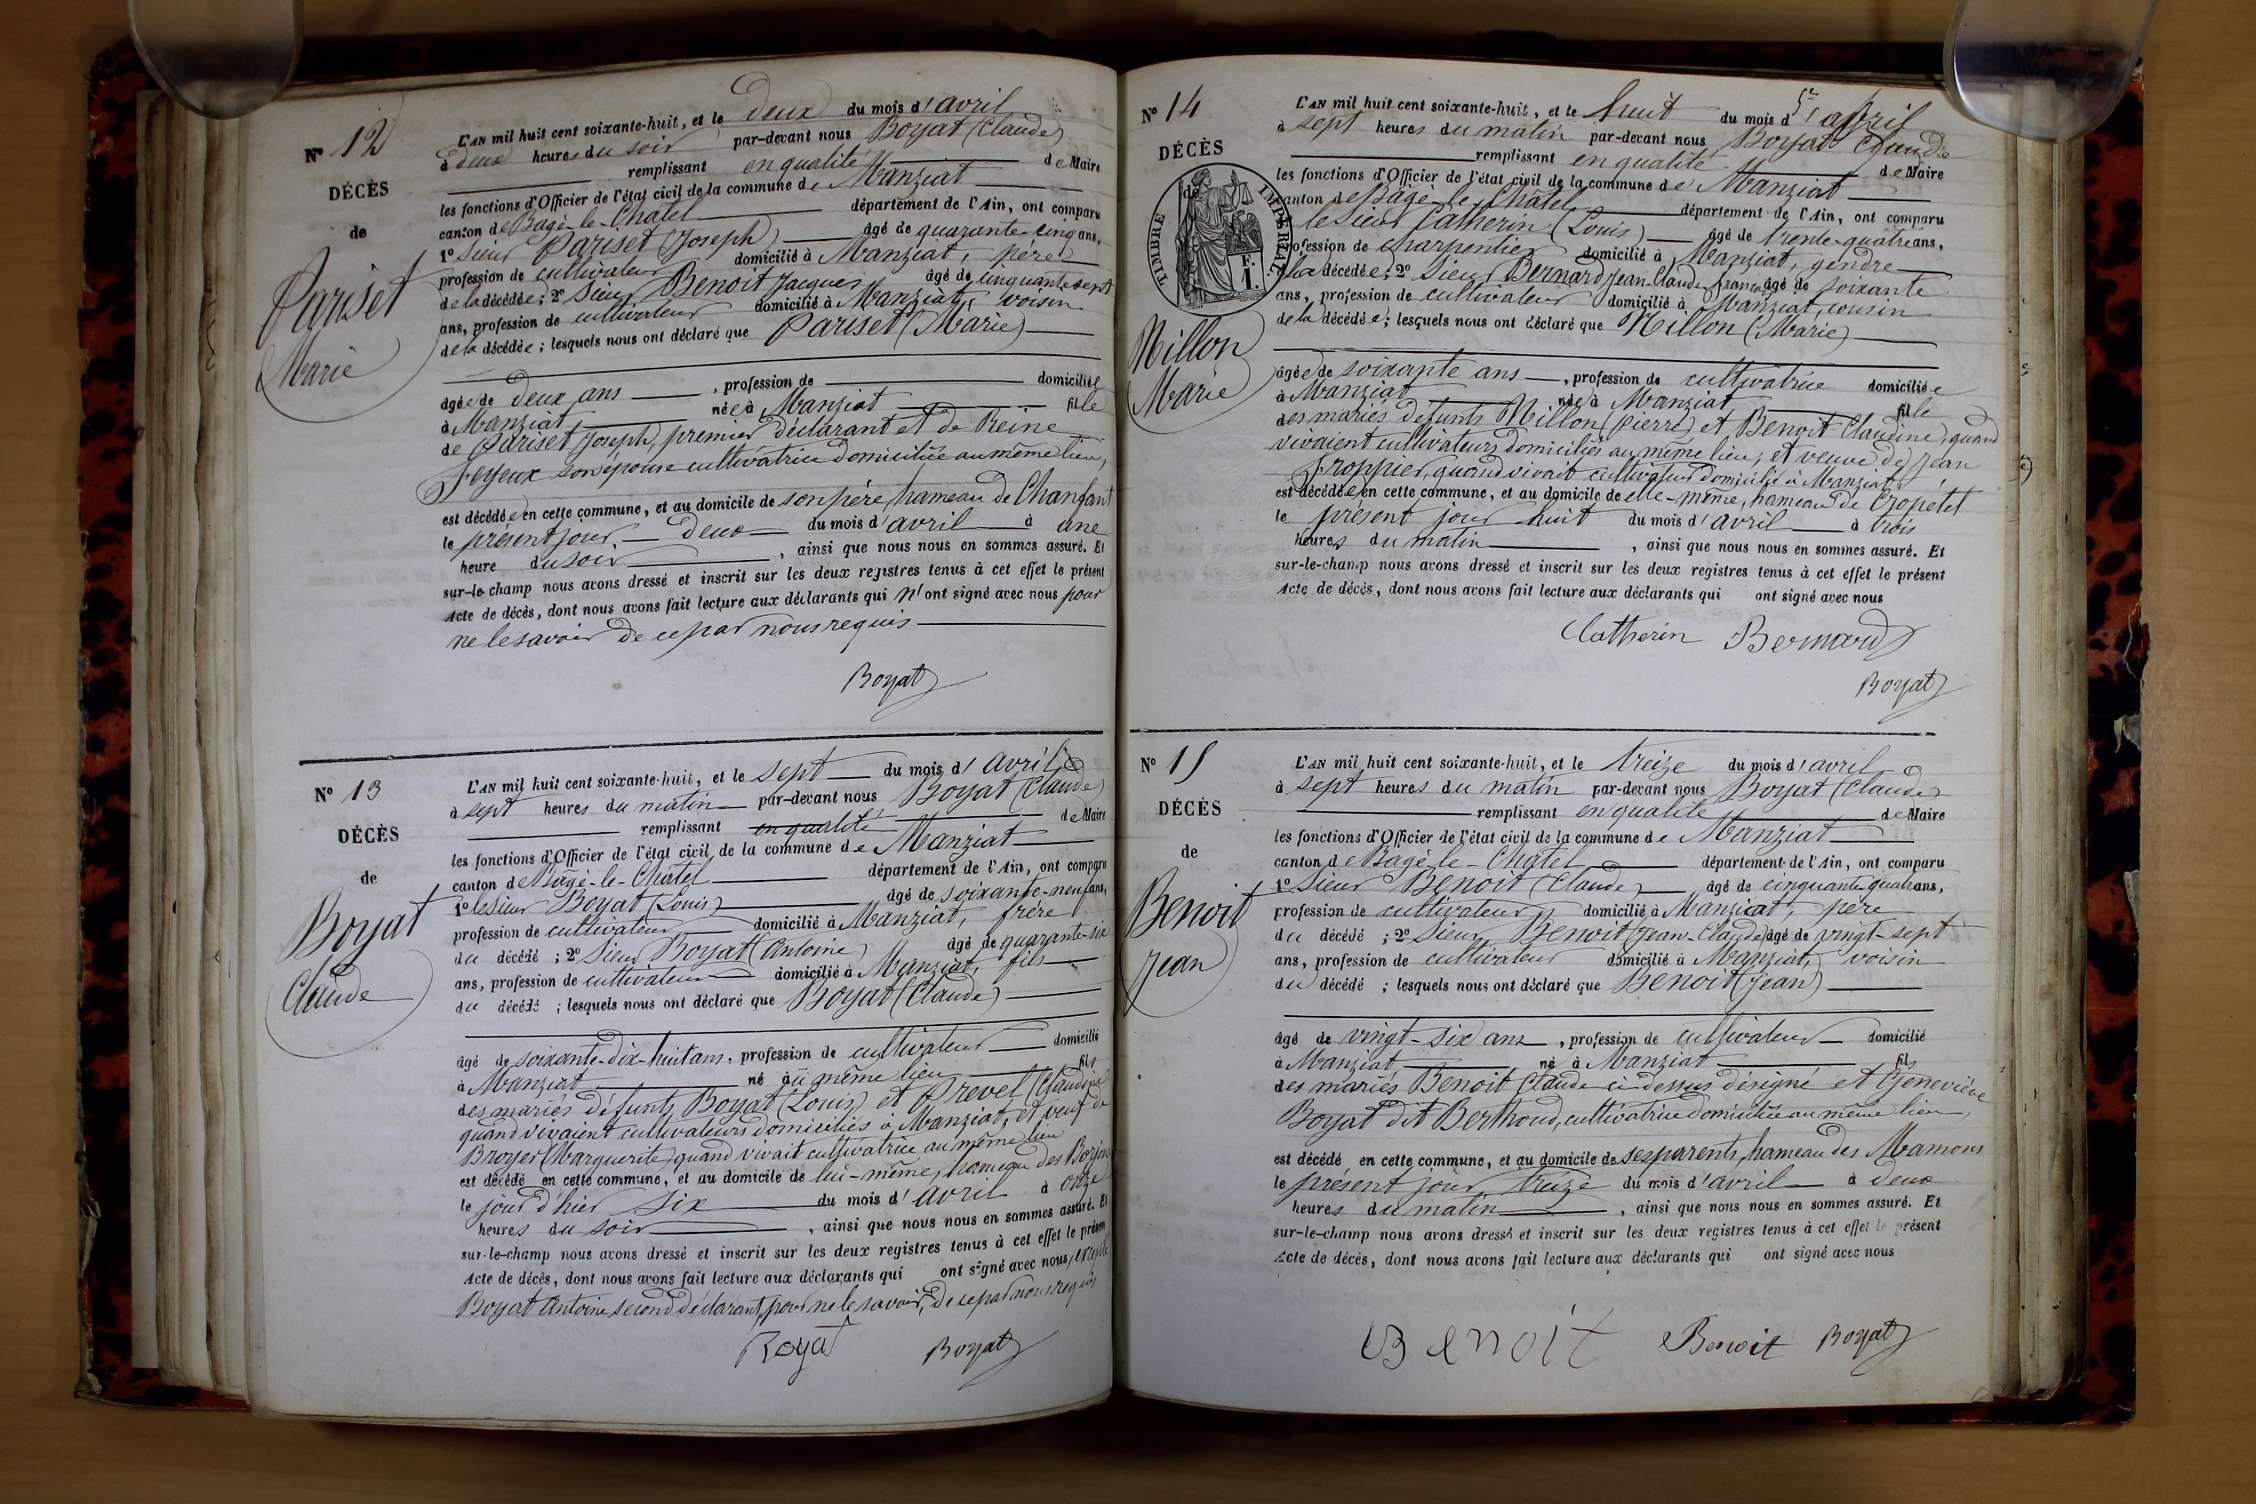 N° 12
DÉCÈS
de
Pariset
Marie
L'AN mil huit cent soixante-huit, et le deux du mois d'avril
à deux heures du soir par-devant nous Boyat (Claude)
remplissant en qualité de Maire
les fonctions d'Officier de l'état civil de la commune de Manziat
canton de Bâgé-le-Châtel département de l'Ain, ont comparu
1° Sieur Pariset (Joseph) âgé de quarante-cinq ans,
profession de cultivateur domicilié à Manziat, père
de la décédée ; 2° Sieur Benoit Jacques âgé de cinquante-sept
ans, profession de cultivateur domicilié à Manziat, voisin
de la décédée ; lesquels nous ont déclaré que Pariset (Marie)
âgée de deux ans , profession de domiciliée
à Manziat née à Manziat fille
de Pariset Joseph, premier déclarant et de Reine
Feyeux son épouse cultivatrice domiciliée au même lieu,
est décédée en cette commune, et au domicile de son père, hameau de Chanfant
le présent jour deux du mois d'avril à une
heure du soir , ainsi que nous nous en sommes assuré. Et
sur-le-champ nous avons dressé et inscrit sur les deux registres tenus à cet effet le présent
Acte de décès, dont nous avons fait lecture aux déclarants qui n'ont signé avec nous pour
ne le savoir de ce par nous requis
Boyat
N° 13
DÉCÈS
de
Boyat
Claude
L'AN mil huit cent soixante-huit, et le sept du mois d'avril
à sept heures du matin par-devant nous Boyat (Claude)
remplissant en qualité de Maire
les fonctions d'Officier de l'état civil de la commune de Manziat
canton de Bâgé-le-Châtel département de l'Ain, ont comparu
1° le Sieur Boyat (Louis) âgé de soixante-neuf ans,
profession de cultivateur domicilié à Manziat, frère
du décédé ; 2° Sieur Boyat (Antoine) âgé de quarante-six
ans, profession de cultivateur domicilié à Manziat, fils
du décédé ; lesquels nous ont déclaré que Boyat (Claude)
âgé de soixante-dix-huit ans, profession de cultivateur domicilié
à Manziat né au même lieu fils
des mariés défunts Boyat (Louis) et Prevel (Claudine)
quand vivaient cultivateurs domiciliés à Manziat, et veuf de
Broyer (Marguerite) quand vivait cultivatrice au même lieu
est décédé en cette commune, et au domicile de lui-même, hameau des Borjons
le jour d'hier six du mois d'avril à onze
heures du soir , ainsi que nous nous en sommes assuré. Et
sur-le-champ nous avons dressé et inscrit sur les deux registres tenus à cet effet le présent
Acte de décès, dont nous avons fait lecture aux déclarants qui ont signé avec nous, excepté
Boyat Antoine second déclarant, pour ne le savoir, de ce par nous requis
Boyat Boyat
N° 14
DÉCÈS
de
TIMBRE IMPÉRIAL
F.
1.
Millon
Marie
L'AN mil huit cent soixante-huit, et le huit du mois d'avril
à sept heures du matin par-devant nous Boyat Claude
remplissant en qualité de Maire
les fonctions d'Officier de l'état civil de la commune de Manziat
canton de Bâgé-le-Châtel département de l'Ain, ont comparu
le Sieur Catherin (Louis) âgé de trente-quatre ans,
profession de charpentier domicilié à Manziat, gendre
de la décédée ; 2° Sieur Bernard Jean-Claude François âgé de soixante
ans, profession de cultivateur domicilié à Manziat, cousin
de la décédée ; lesquels nous ont déclaré que Millon (Marie)
âgée de soixante ans , profession de cultivatrice domiciliée
à Manziat née à Manziat fille
des mariés défunts Millon (Pierre) et Benoit Claudine, quand
vivaient cultivateurs domiciliés au même lieu, et veuve de Jean
Froppier, quand vivait cultivateur domicilié à Manziat,
est décédée en cette commune, et au domicile de elle-même, hameau de Cropetet
le présent jour huit du mois d'avril à trois
heures du matin , ainsi que nous nous en sommes assuré. Et
sur-le-champ nous avons dressé et inscrit sur les deux registres tenus à cet effet le présent
Acte de décès, dont nous avons fait lecture aux déclarants qui ont signé avec nous
Catherin Bernard
Boyat
N° 15
DÉCÈS
de
Benoit
Jean
L'AN mil huit cent soixante-huit, et le treize du mois d'avril
à sept heures du matin par-devant nous Boyat (Claude)
remplissant en qualité de Maire
les fonctions d'Officier de l'état civil de la commune de Manziat
canton de Bâgé-le-Châtel département de l'Ain, ont comparu
1° Sieur Benoit (Claude) âgé de cinquante-quatre ans,
profession de cultivateur domicilié à Manziat, père
du décédé ; 2° Sieur Benoit (Jean-Claude) âgé de vingt-sept
ans, profession de cultivateur domicilié à Manziat, voisin
du décédé ; lesquels nous ont déclaré que Benoit (Jean)
âgé de vingt-six ans , profession de cultivateur domicilié
à Manziat né à Manziat fils
des mariés Benoit Claude ci-dessus désigné et Geneviève
Boyat dit Berthoud, cultivatrice domiciliée au même lieu,
est décédé en cette commune, et au domicile de ses parents, hameau des Mamons
le présent jour treize du mois d'avril à deux
heures du matin , ainsi que nous nous en sommes assuré. Et
sur-le-champ nous avons dressé et inscrit sur les deux registres tenus à cet effet le présent
Acte de décès, dont nous avons fait lecture aux déclarants qui ont signé avec nous
Benoit Benoit Boyat